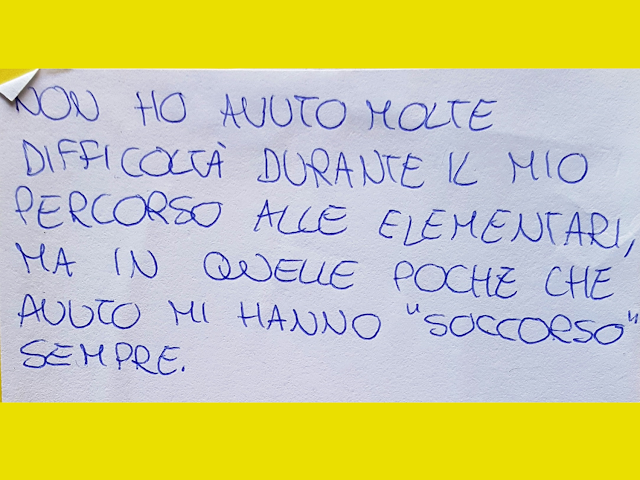 NON HO AVUTO MOLTE
DIFFICOLTÀ DURANTE IL MIO
PERCORSO ALLE ELEMENTARI,
MA IN QUELLE POCHE CHE
AVUTO MI HANNO "SOCCORSO"
SEMPRE.